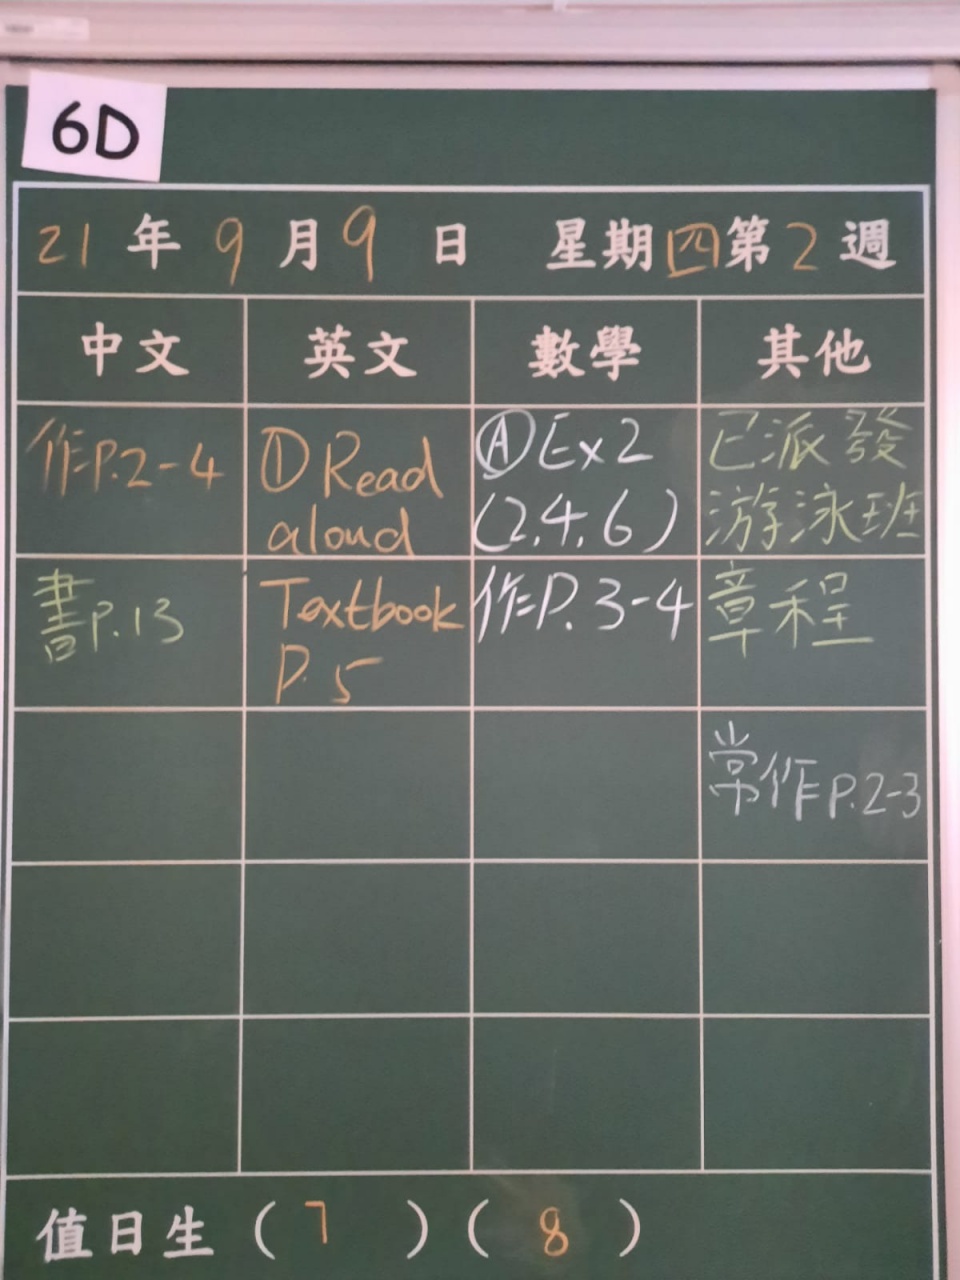 6D
21年9月9日 星期四第2週
中文 英文 數學 其他
作P.2-4
①Read
aloud
Ⓐ Ex2
(2,4,6)
已派發
游泳班
書P.13
Textbook
P.5
作P.3-4
章程
常作P.2-3
值日生(7)(8)